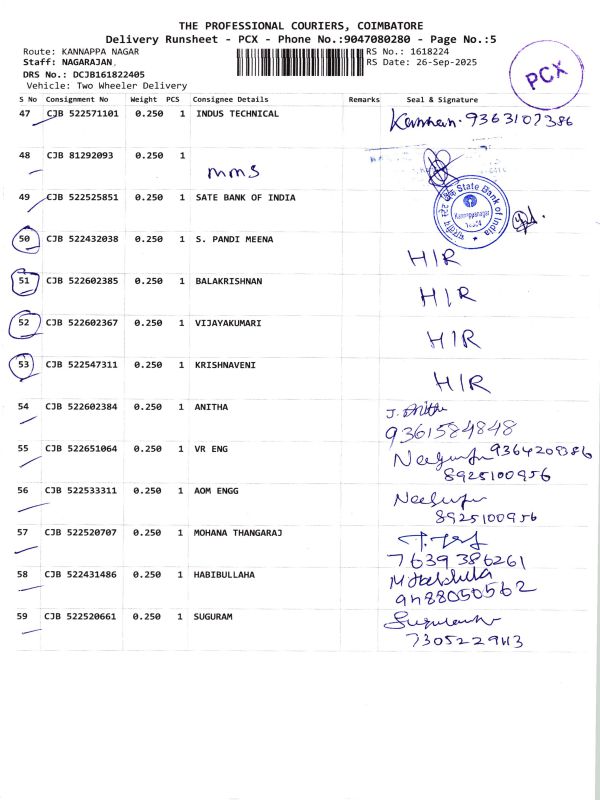 THE PROFESSIONAL COURIERS, COIMBATORE
Delivery Runsheet - PCX - Phone No.:9047080280 - Page No.:5
Route: KANNAPPA NAGAR RS No.: 1618224
Staff: NAGARAJAN. RS Date: 26-Sep-2025
DRS No.: DCJB161822405
Vehicle: Two Wheeler Delivery
PCX
S No Consignment No Weight PCS Consignee Details Remarks Seal & Signature
47 CJB 522571101 0.250 1 INDUS TECHNICAL Kannan. 9363107386
48 CJB 81292093 0.250 1 mms
49 CJB 522525851 0.250 1 SATE BANK OF INDIA
State Bank of India
Kannappanagar
50 CJB 522432038 0.250 1 S. PANDI MEENA H/R
51 CJB 522602385 0.250 1 BALAKRISHNAN H/R
52 CJB 522602367 0.250 1 VIJAYAKUMARI H/R
53 CJB 522547311 0.250 1 KRISHNAVENI H/R
54 CJB 522602384 0.250 1 ANITHA J. Anitha
9361584848
55 CJB 522651064 0.250 1 VR ENG
8925100956
56 CJB 522533311 0.250 1 AOM ENGG
8925100956
57 CJB 522520707 0.250 1 MOHANA THANGARAJ
7639386261
58 CJB 522431486 0.250 1 HABIBULLAHA
9488050562
59 CJB 522520661 0.250 1 SUGURAM